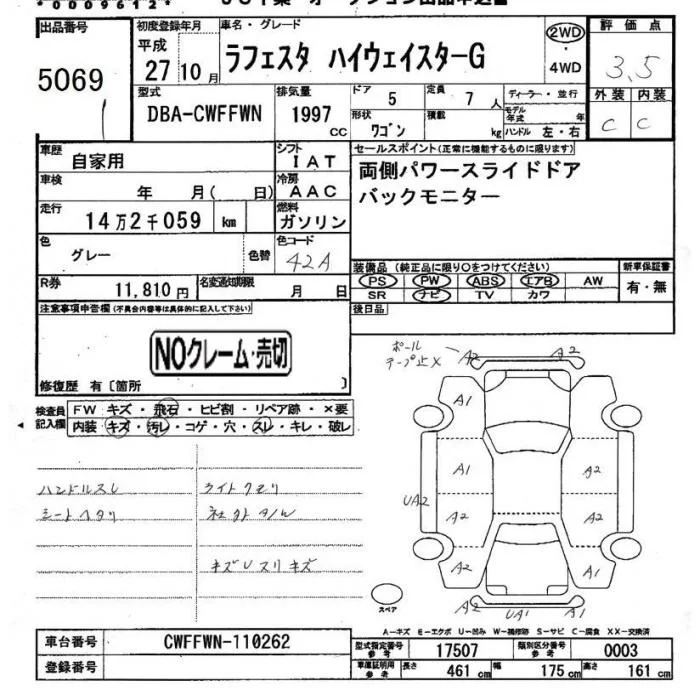 *0009612*
出品番号 初度登録年月 車名・グレード 評価点
5069 平成 27 10月 ラフェスタ ハイウェイスターG 2WD・4WD 3.5
型式 DBA-CWFFWN 排気量 1997 cc ドア 5 定員 7 人 ディーラー・並行 外装 内装
形状 ワゴン 積載 kg モデル年式 年 ハンドル 左・右 C C
車歴 自家用 シフト IAT セールスポイント(正常に機能するものに限ります)
車検 年 月( 日) 冷房 AAC 両側パワースライドドア
走行 14万2千059 km 燃料 ガソリン バックモニター
色 グレー 色替 色コード 42A
装備品(純正品に限り○をつけてください) 新車保証書
R券 11,810円 名変通知期限 月 日 PS PW ABS エアB AW 有・無
SR ナビ TV カワ
注意事項申告欄(不具合内容等は具体的に記入して下さい) 後日品
NOクレーム・売切
修復歴 有〔箇所 〕
ポール
テープ止X A2 A2 A1
検査員 FW キズ・飛石・ヒビ割・リペア跡・×要
記入欄 内装 キズ・汚レ・コゲ・穴・スレ・キレ・破レ
A1
ハンドルスレ ライトクモリ A1 A2
シートヘタリ UA2 A2 A2
キズUスリキズ A2 A1
スペア A2 UA1 A2
A―キズ E―エクボ U―凹み W―補修跡 S―サビ C―腐食 XX―交換済
車台番号 CWFFWN-110262 型式指定番号 参考 17507 類別区分番号 参考 0003
登録番号 車庫証明用 参考 長さ 461 cm 幅 175 cm 高さ 161 cm